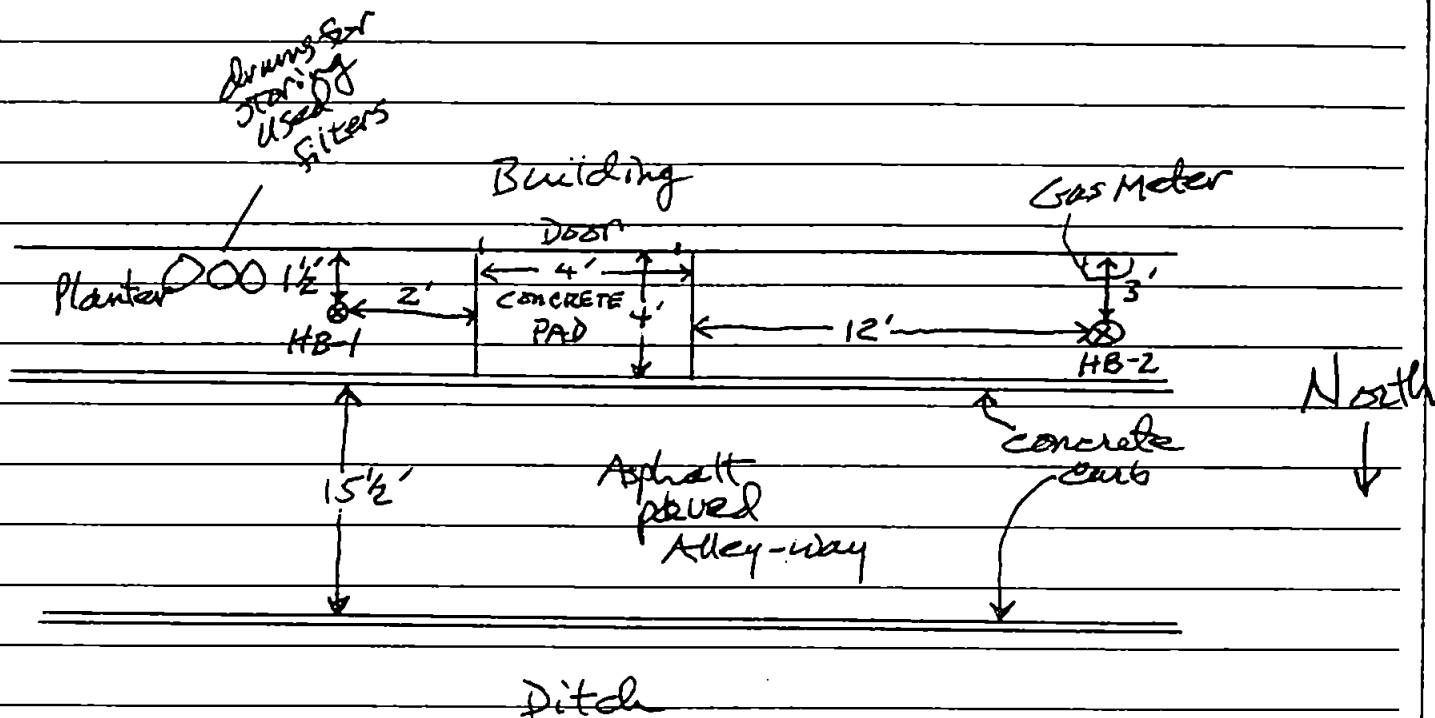 drums for
storing
used
filters
Building
Gas Meter
Door
Planter
1½'
2'
4'
CONCRETE
PAD
4'
12'
3'
HB-1
HB-2
North
concrete
curb
15½'
Asphalt
paved
Alley-way
Ditch